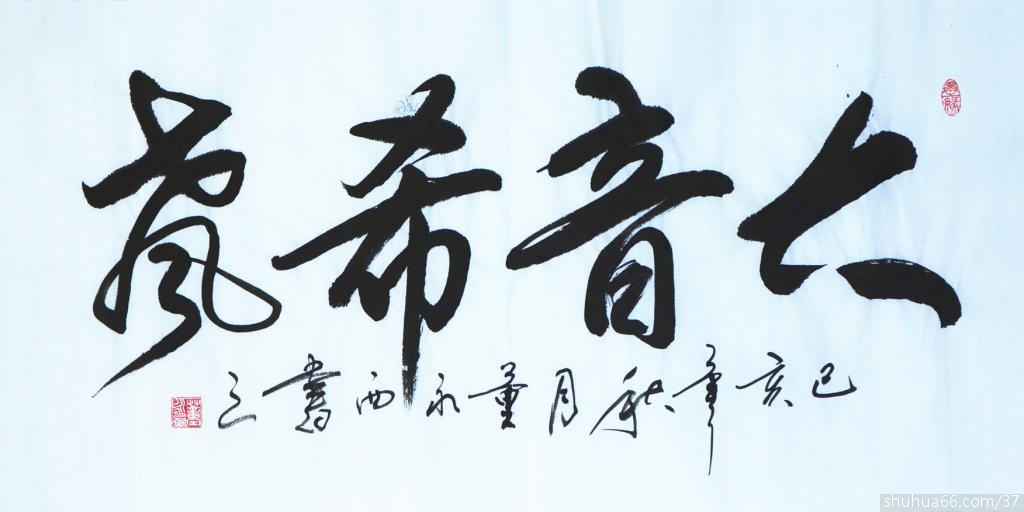 大音希聲
己亥年秋月董永西書之
shuhua66.com/37